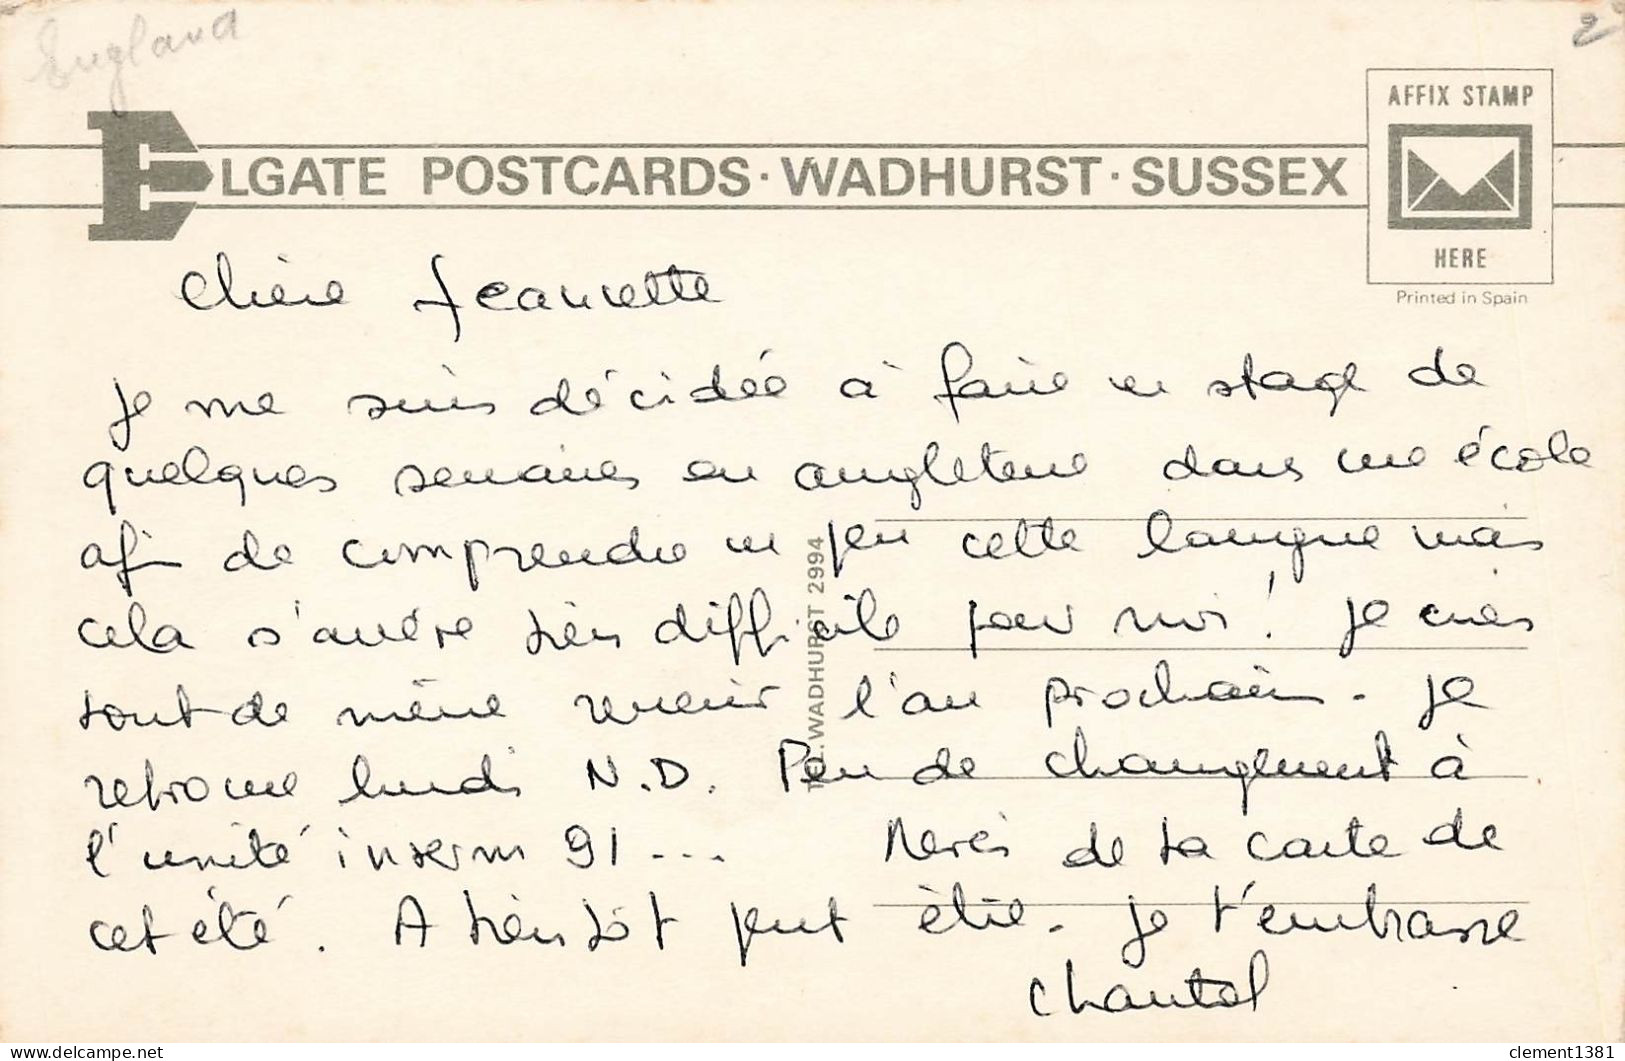 England
2
ELGATE POSTCARDS · WADHURST · SUSSEX
AFFIX STAMP
HERE
Printed in Spain
TEL. WADHURST 2994
Chère Jeannette
Je me suis décidée à faire un stage de
quelques semaines en angleterre dans une école
afin de comprendre un peu cette langue mais
cela s'avère très difficile pour moi ! Je crois
tout de même revenir l'an prochain. Je
retrouve lundi N.D. Peu de changement à
l'unité inserm 91 ... Merci de ta carte de
cet été. A bientôt peut être. Je t'embrasse
Chantal
delcampe.net
clement1381